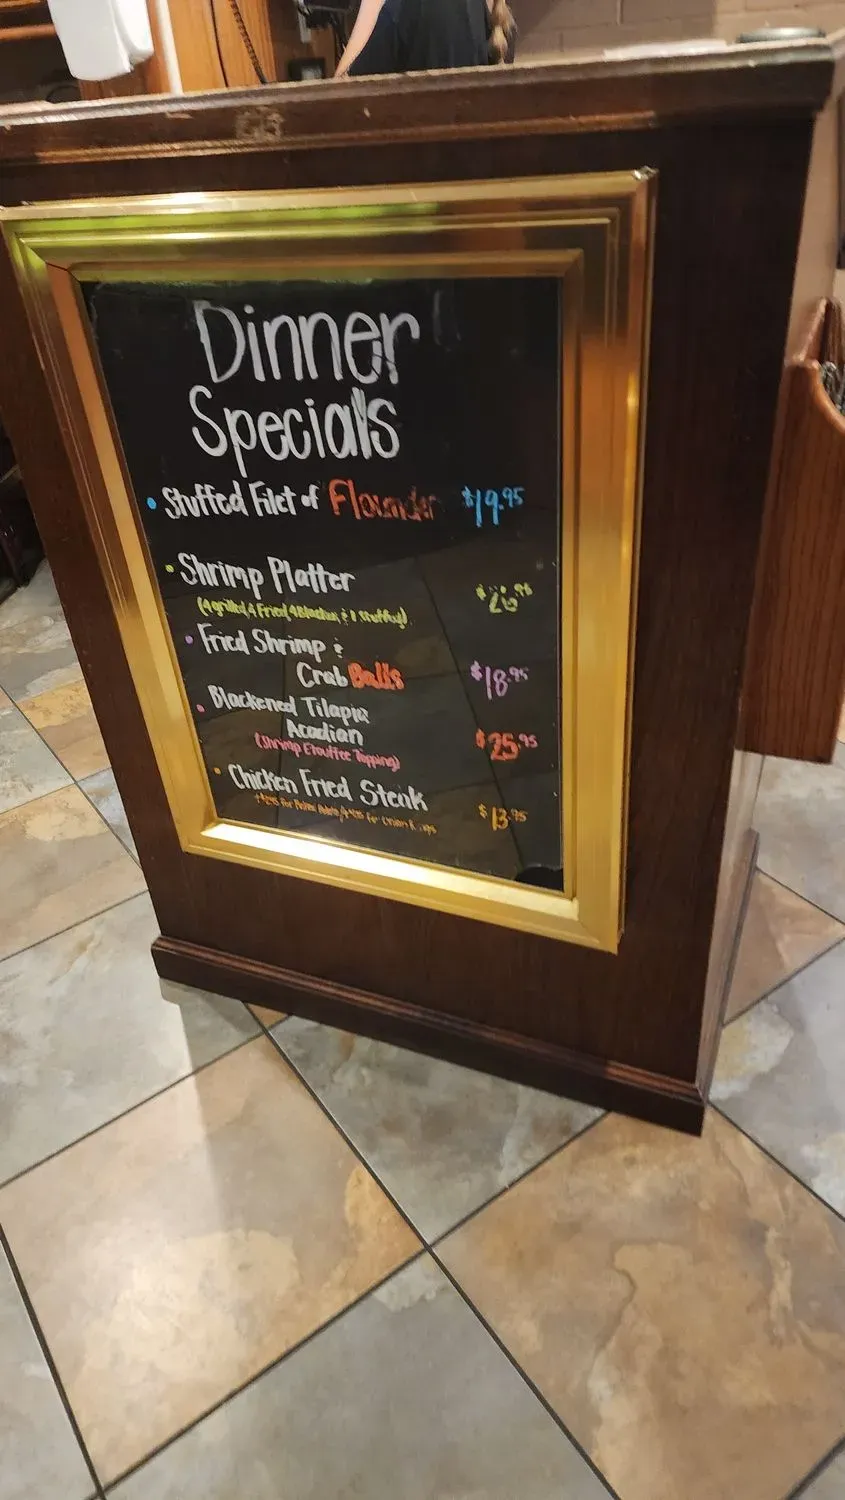 Dinner
Specials
• Stuffed Filet of Flounder $19.95
• Shrimp Platter $26.95
(4 grilled, 4 Fried, 4 Blacken & 1 Stuffed)
• Fried Shrimp &
Crab Balls $18.95
• Blackened Tilapia
Acadian $25.95
(Shrimp Etouffee Topping)
• Chicken Fried Steak $13.95
for for